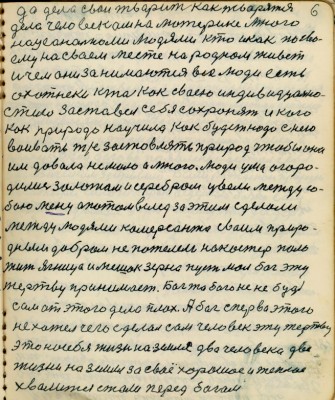 да дела свои творит как творятя 6
дела человеком на мотерике много
нацеанолноми людями кто и как по сво
ему на своем месте народном живет
и чем они занимаются все люди есть
охотнеки кто как своею индивидуално
стию застався себя сохронят и кого
как природо научила как будет надо с нею
воивать т/с застовлять природ чтобы она
им довала не мало а много. Люди ума огоро
дили золотам и серебром увели между со
бою мену а потом вслед за этим сделали
между людями комерсанта своим приро
дным добром не пожелел на костер поло
жит ягница и мешок зерна пуст мол бог эту
жертву принимает. Бог то бого не не буд
сам от этого дела плох. А бог сперва этого
не хотел чего сделал сам человек эту жертву
это не себя жизн на земле два человека две
жизни на земли за своё хорошое и теплое
хвалится стали перед богам